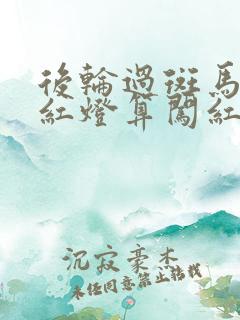 後輪過斑馬
紅燈算闖紅
沉寂豪木
未经同意禁止转载